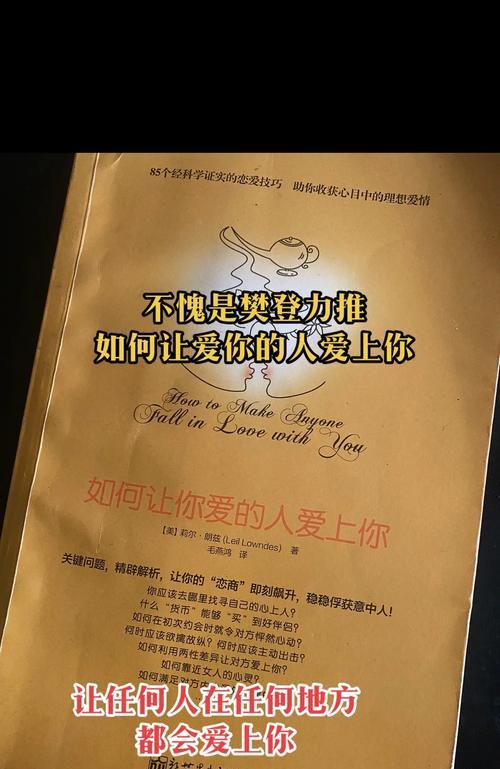 85个经科学证实的恋爱技巧 助你收获心目中的理想爱情
不愧是樊登力推
如何让爱你的人爱上你
How to Make Anyone
Fall in Love with You
如何让你爱的人爱上你
【美】莉尔·朗兹(Leil Lowndes) 著
毛燕鸿 译
关键问题，精辟解析，让你的“恋商”即刻飙升，稳稳俘获意中人！
你应该去哪里找寻自己的心上人？
什么“货币”能够“买”到好伴侣？
如何在初次约会时就令对方怦然心动？
何时应该欲擒故纵？何时应该主动出击？
如何利用两性差异让对方爱上你？
如何靠近女人的心灵？
如何满足对方内
让任何人在任何地方
都会爱上你